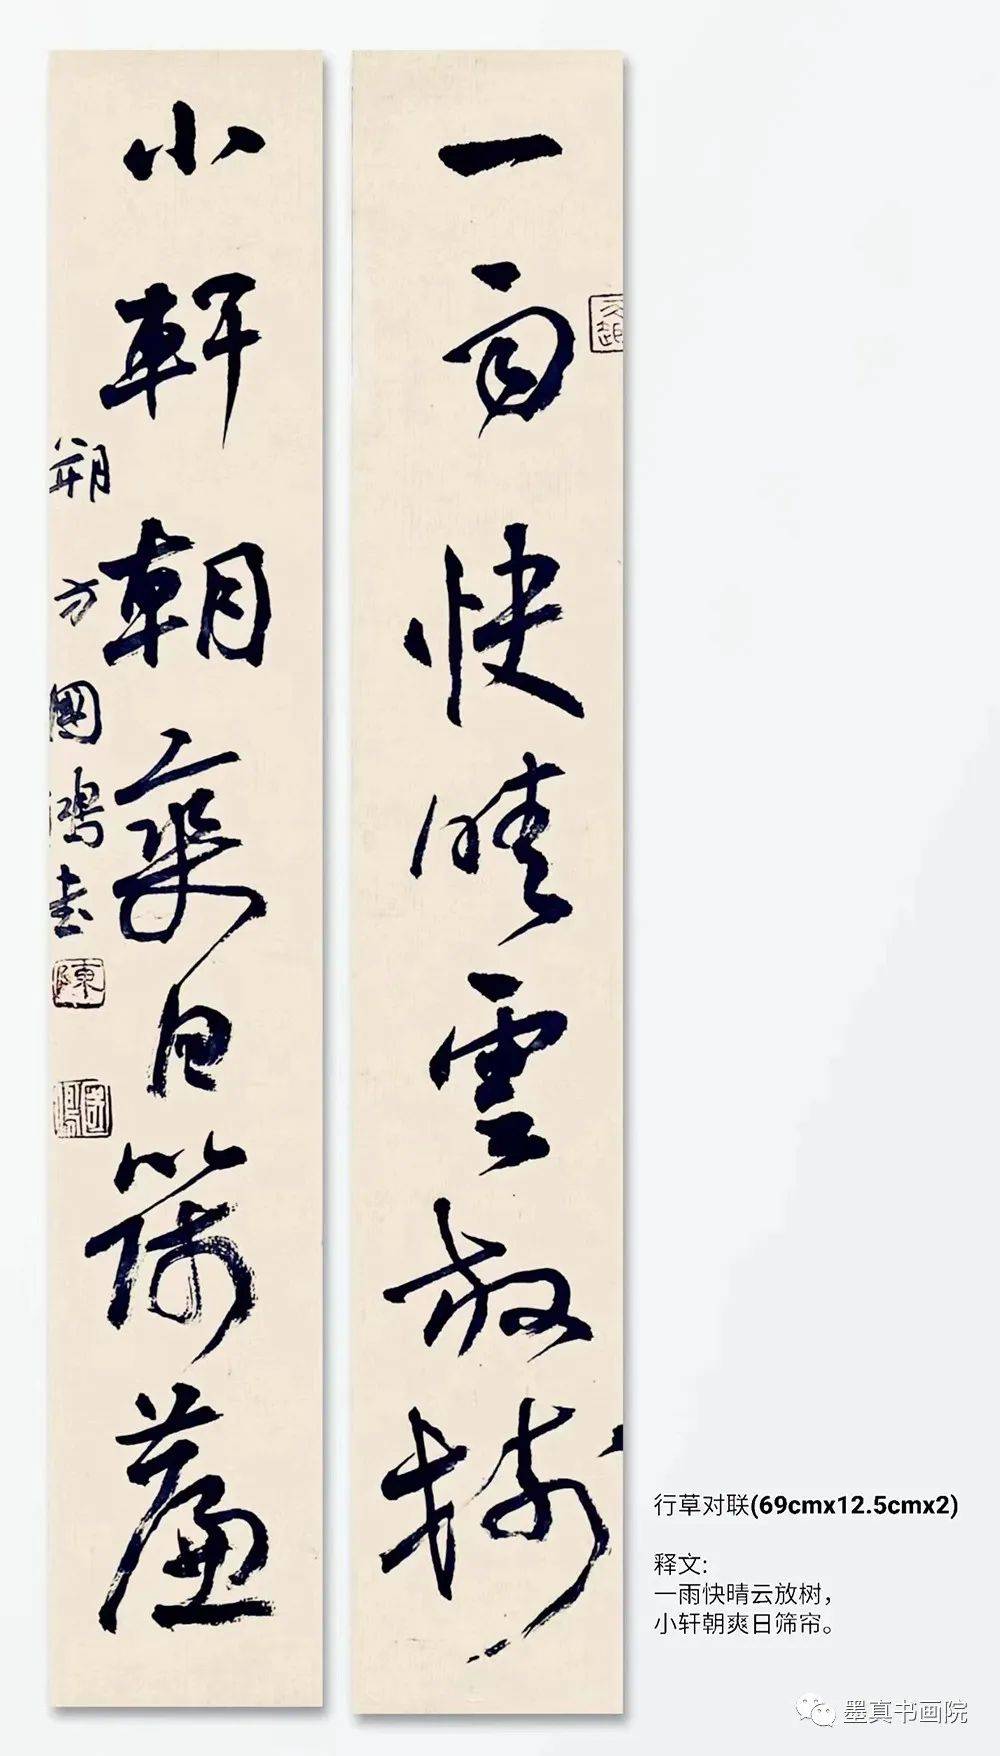 一雨快晴雲放樹
小軒朝爽日篩簾
朔方國鴻書
陳
行草对联(69cmx12.5cmx2)
释文:
一雨快晴云放树，
小轩朝爽日筛帘。
墨真书画院